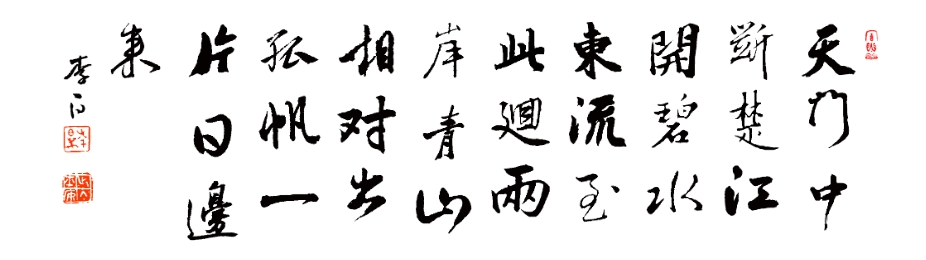 天门中
斷楚江
開碧水
東流至
此迴兩
岸青山
相对出
孤帆一
片日邊
来
李白